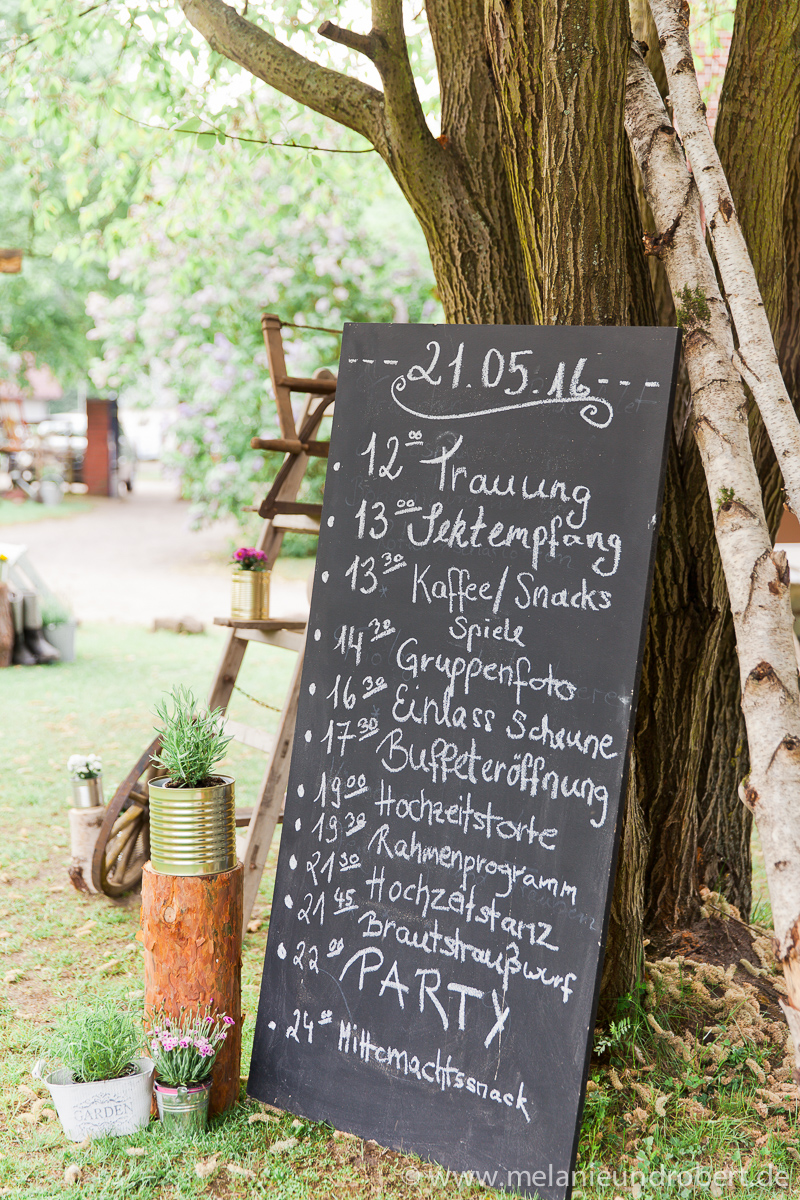 --- 21.05.16 ---
• 12⁰⁰ Trauung
• 13⁰⁰ Sektempfang
• 13³⁰ Kaffee/Snacks
Spiele
• 14³⁰ Gruppenfoto
• 16³⁰ Einlass Scheune
• 17³⁰ Buffeteröffnung
• 19⁰⁰ Hochzeitstorte
• 19³⁰ Rahmenprogramm
• 21³⁰ Hochzeitstanz
• 21⁴⁵ Brautstraußwurf
• 22⁰⁰ PARTY
• 24⁰⁰ Mitternachtssnack
GARDEN
© www.melanieundrobert.de